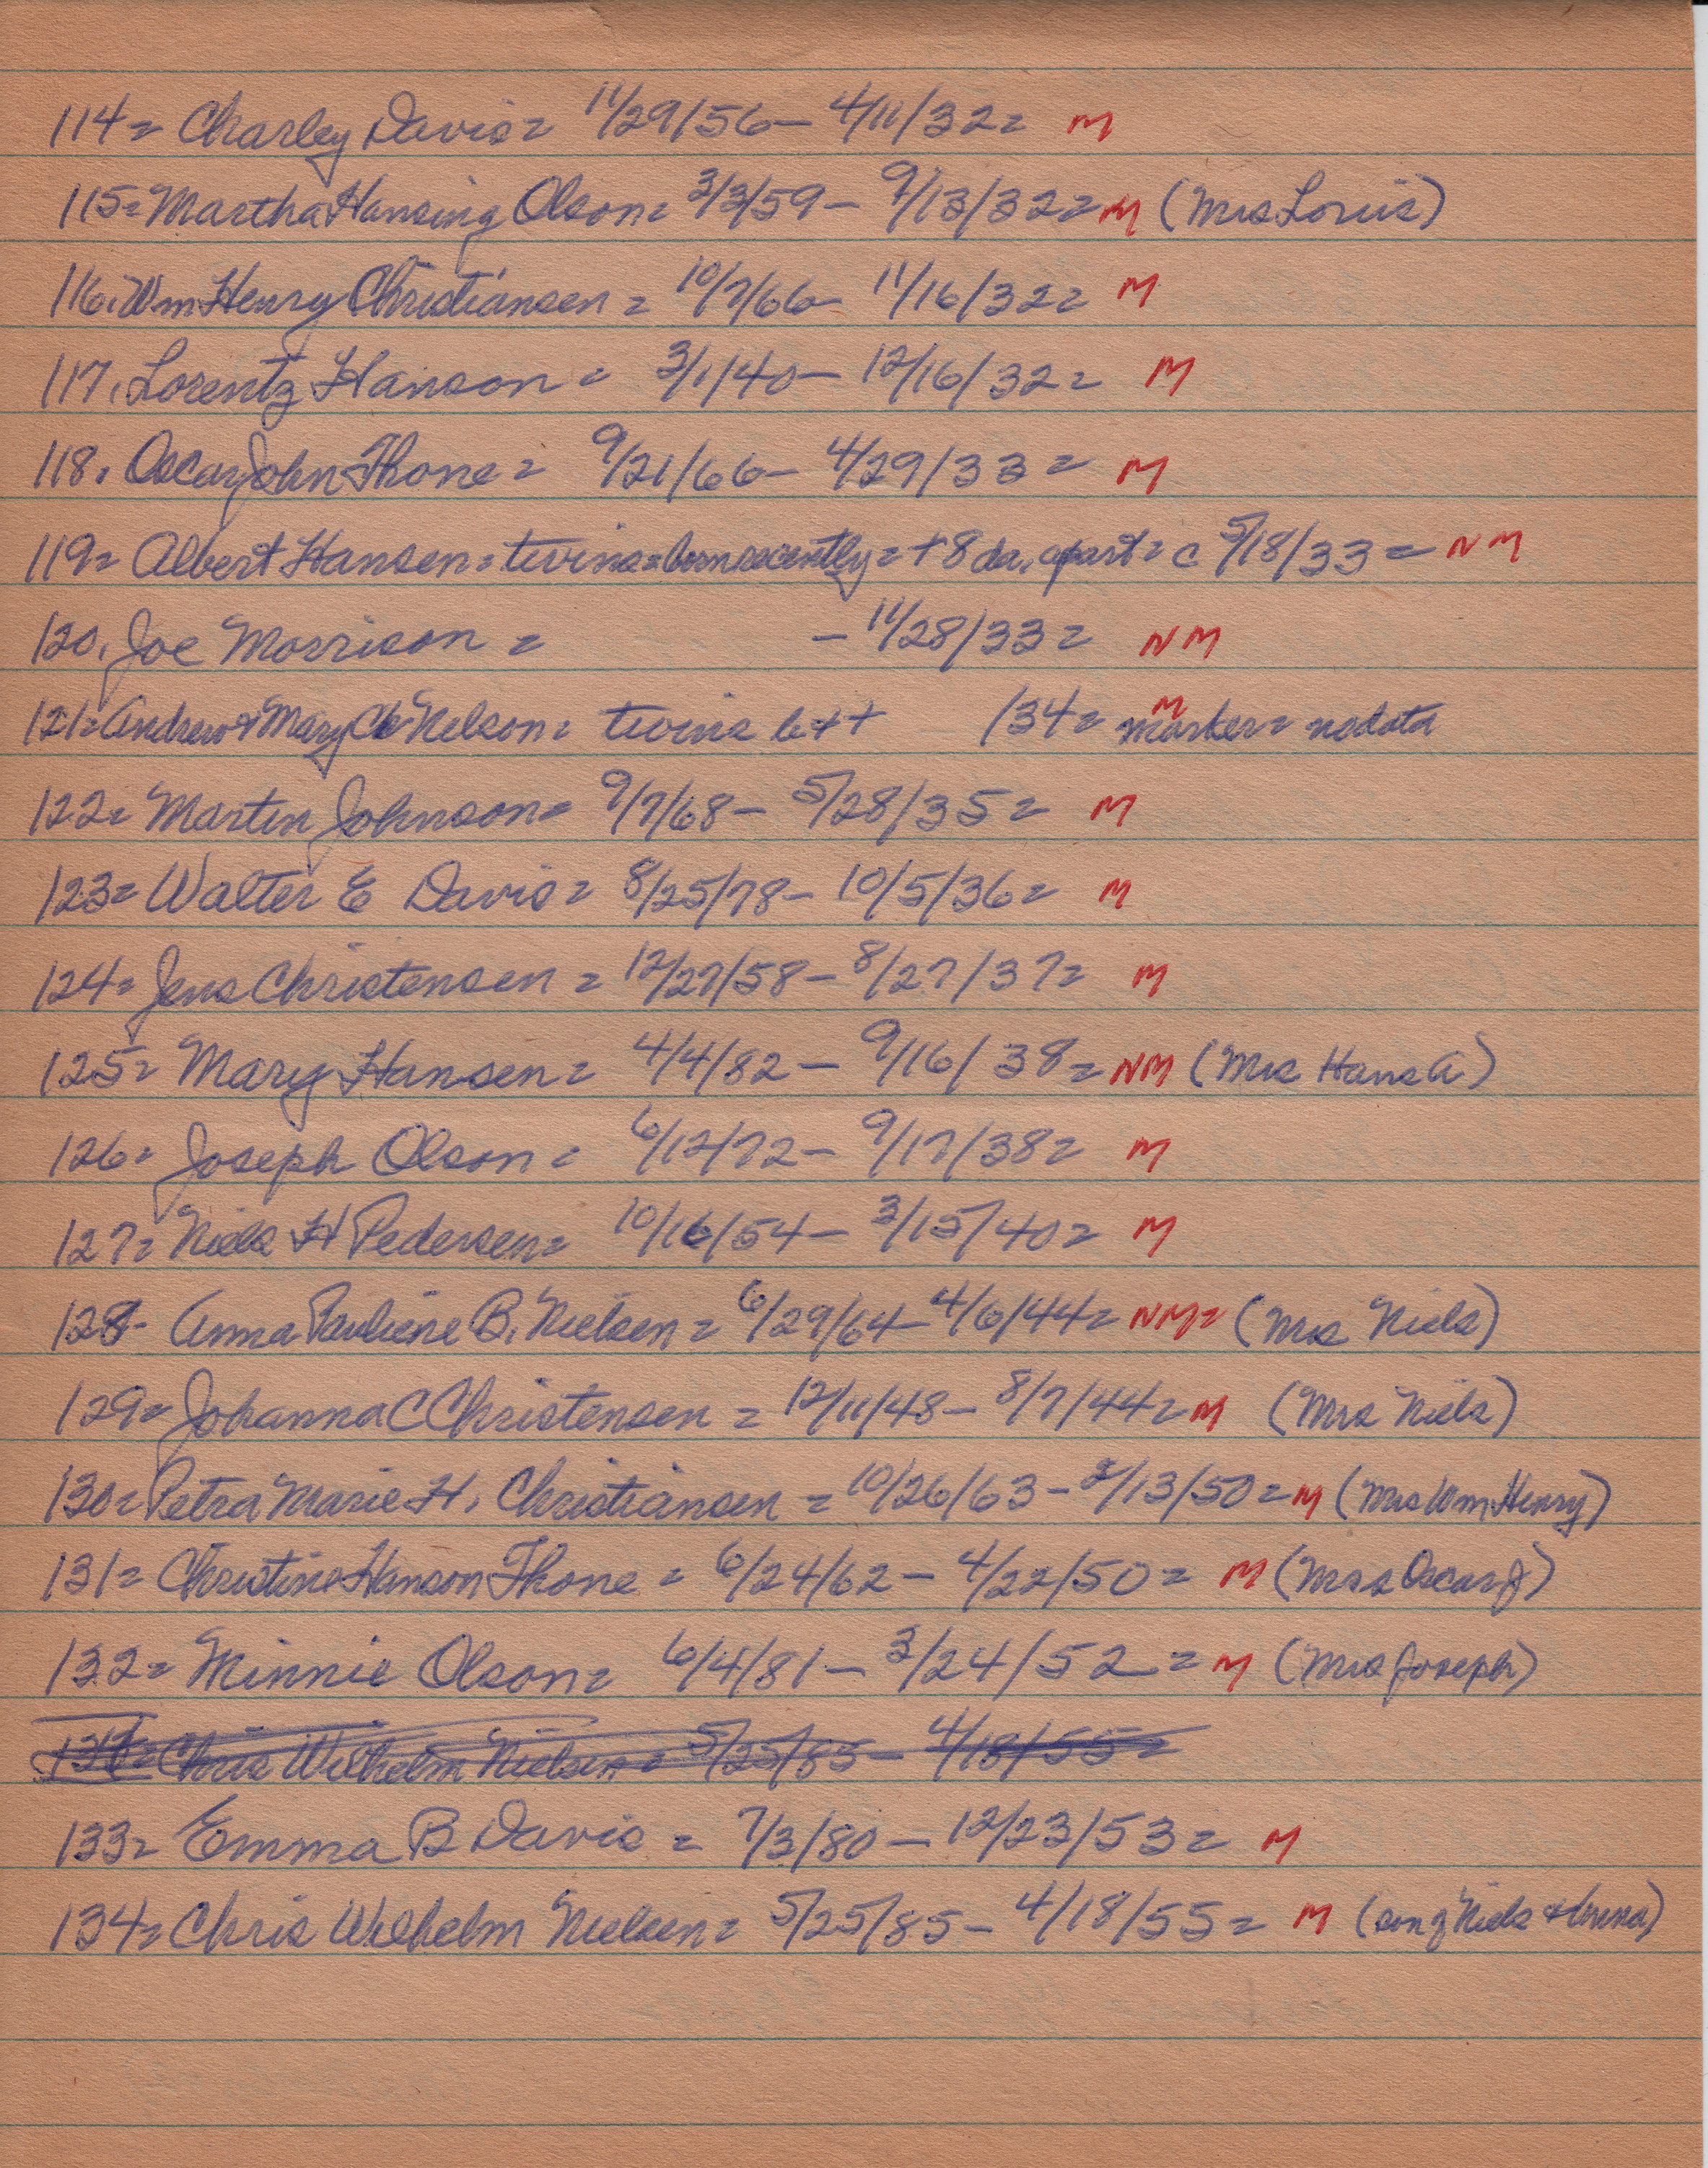 114= Charley Davis= 11/29/56- 4/11/32= M
115= Martha Hansing Olson= 3/3/59- 9/13/32= M (Mrs Louis)
116. Wm Henry Christiansen= 10/7/66- 11/16/32= M
117. Lorentz Hanson= 3/1/40- 12/16/32= M
118. Oscar John Thone= 9/21/66- 4/29/33= M
119= Albert Hansen= twins= born recently= + 8 da. apart= c 5/18/33= NM
120. Joe Morrison= - 11/28/33= NM
121= Andrew & Mary Nelson= twins b++ /34= M marker= no data
122= Martin Johnson= 9/7/68- 5/28/35= M
123= Walter E Davis= 8/25/78- 10/5/36= M
124= Jens Christensen= 12/27/58- 8/27/37= M
125= Mary Hansen= 4/4/82- 9/16/38= NM (Mrs Hans A)
126= Joseph Olson= 6/12/72- 9/17/38= M
127= Niels H Pedersen= 10/16/54- 3/15/40= M
128- Anna Pauliene B. Nielsen= 6/29/64- 4/6/44= NM= (Mrs Niels)
129= Johanna C Christensen= 12/11/48- 8/7/44= M (Mrs Niels)
130= Petra Marie H. Christiansen= 10/26/63- 2/13/50= M (Mrs Wm Henry)
131= Christine Hanson Thone= 6/24/62- 4/22/50= M (Mrs Oscar J)
132= Minnie Olson= 6/4/81- 3/24/52= M (Mrs Joseph)
Chris Wilhelm Nielsen= 5/25/85- 4/18/55=
133= Emma B Davis= 7/3/80- 12/23/53= M
134= Chris Wilhelm Nielsen= 5/25/85- 4/18/55= M (son of Niels & Anna)